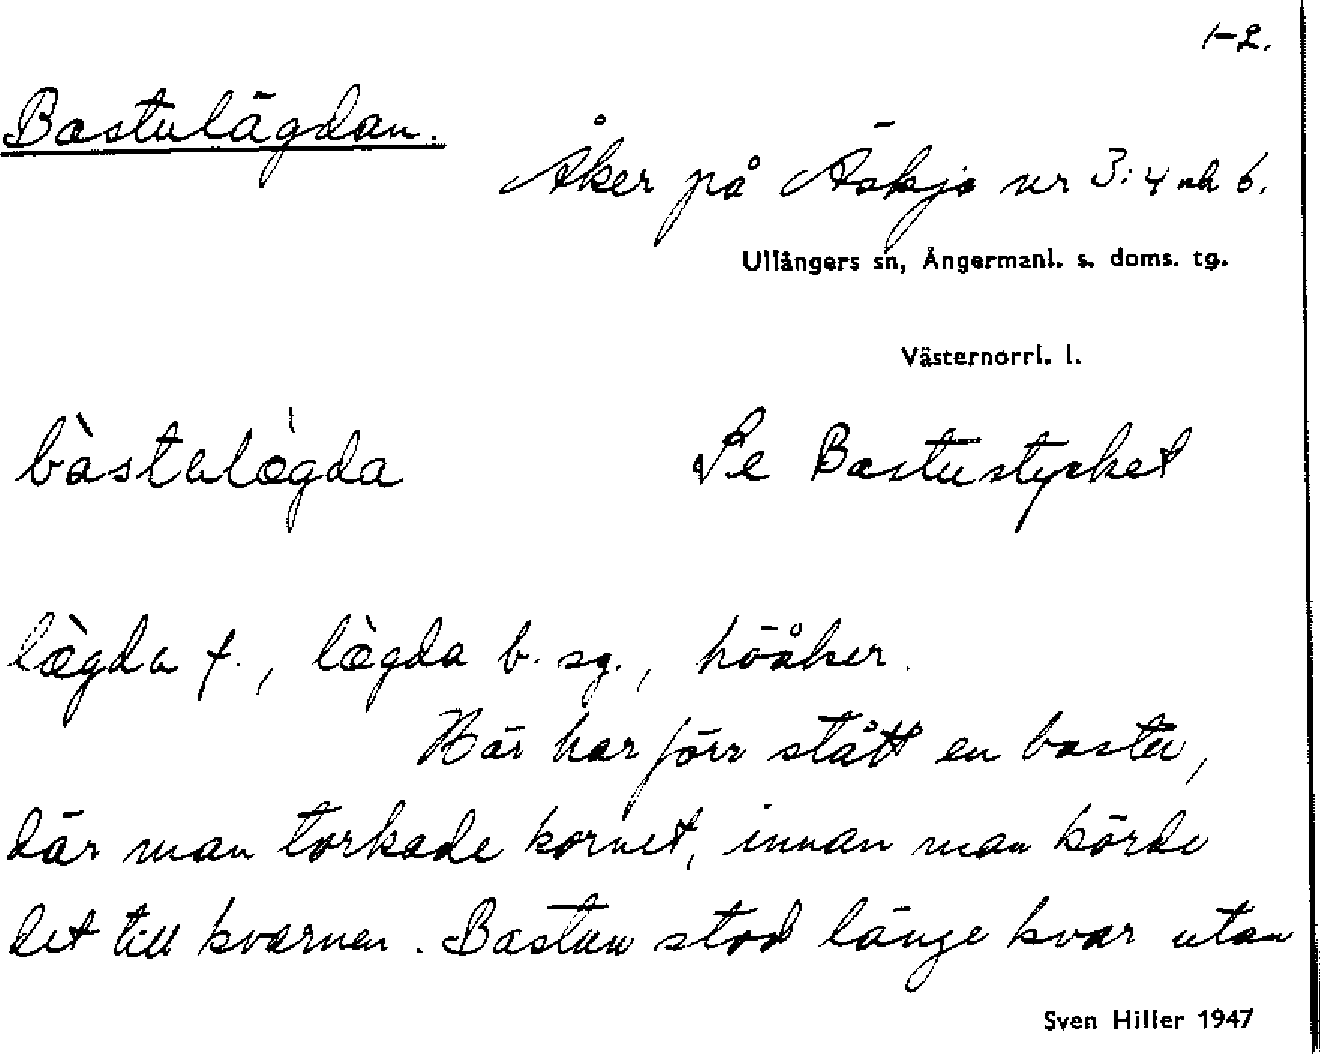 1-2.
Bastulägdan.
Åker på Äskja nr 3:4 och 6.
Ullångers sn, Ångermanl. s. doms. tg.
Västernorrl. l.
bàstulæ̀gda
Se Bastustycket
læ̀gda f., læ̀gda b. sg., höåker.
Här har förr stått en bastu,
där man torkade kornet, innan man körde
det till kvarnen. Bastun stod länge kvar utan
Sven Hiller 1947